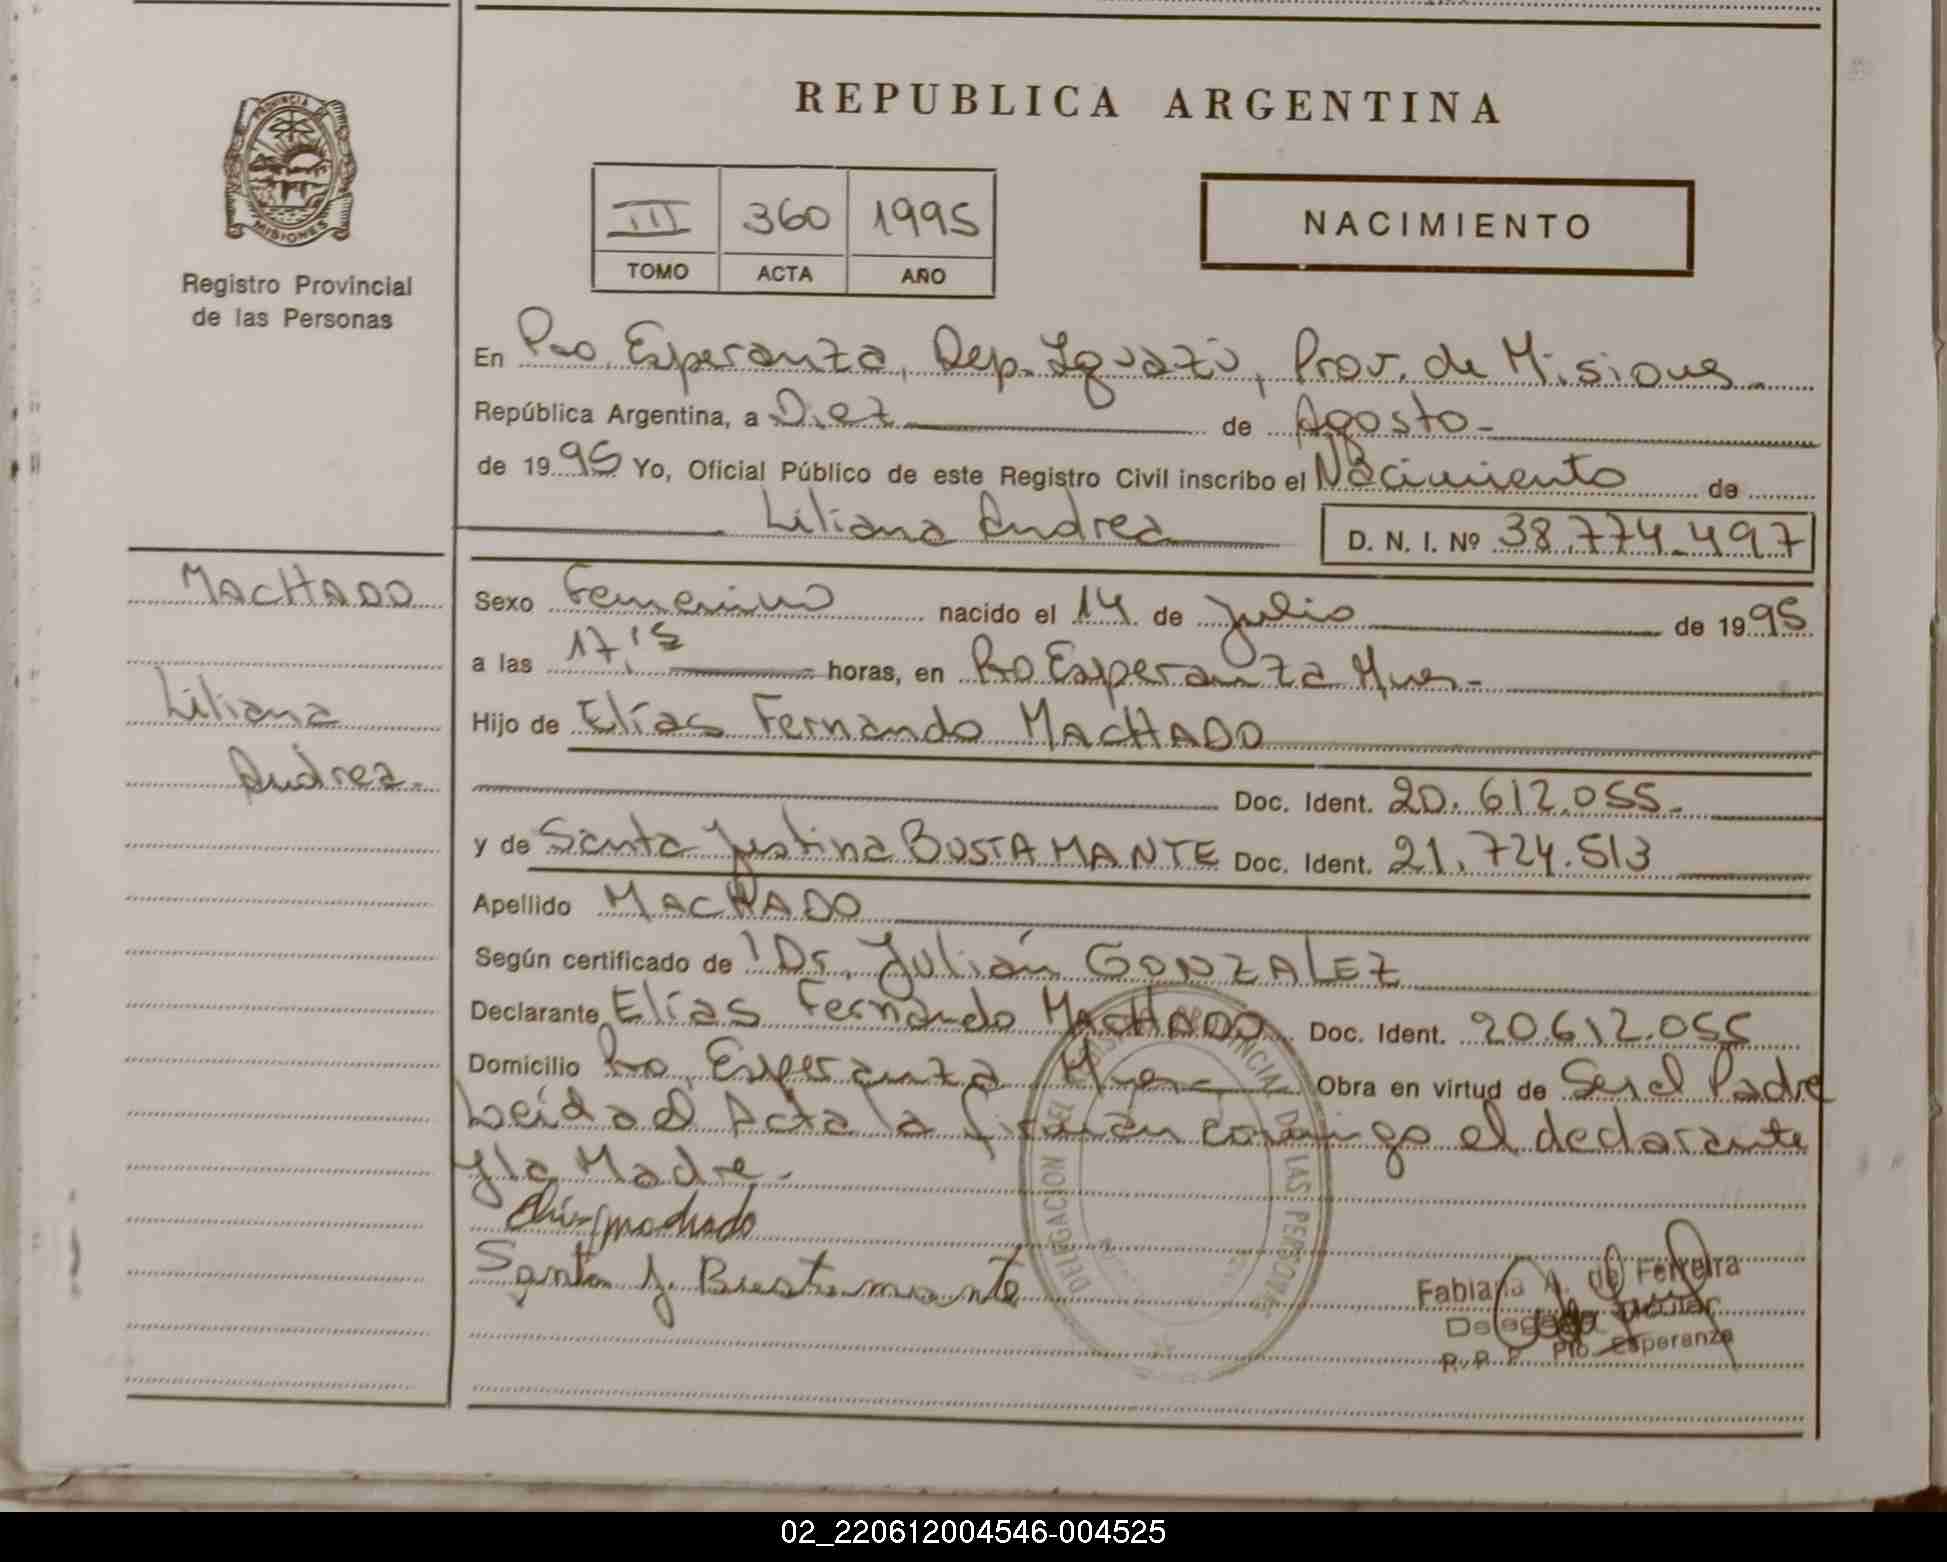 REPUBLICA ARGENTINA
PROVINCIA DE
MISIONES
Registro Provincial
de las Personas
III 360 1995
TOMO ACTA AÑO
NACIMIENTO
En Pto. Esperanza, Dep. Iguazú, Prov. de Misiones
República Argentina, a Diez de Agosto
de 1995 Yo, Oficial Público de este Registro Civil inscribo el Nacimiento de
Liliana Andrea D. N. I. Nº 38.774.497
MACHADO
Liliana
Andrea.
Sexo Femenino nacido el 14 de Julio de 1995
a las 17,15 horas, en Pto Esperanza Mnes.
Hijo de Elías Fernando MACHADO
Doc. Ident. 20.612.055.
y de Santa Justina BUSTAMANTE Doc. Ident. 21.724.513
Apellido MACHADO
Según certificado de Dr. Julián GONZALEZ
Declarante Elías Fernando MACHADO Doc. Ident. 20.612.055
Domicilio Pto. Esperanza Mnes. Obra en virtud de Ser el Padre
Leída el Acta la firman conmigo el declarante
y la Madre.
machado
Santa J. Bustamante
DELEGACION DEL REGISTRO PROVINCIAL DE LAS PERSONAS
Fabiana A. de Ferreira
Delegada Titular
R. P. P. Pto. Esperanza
02_220612004546-004525